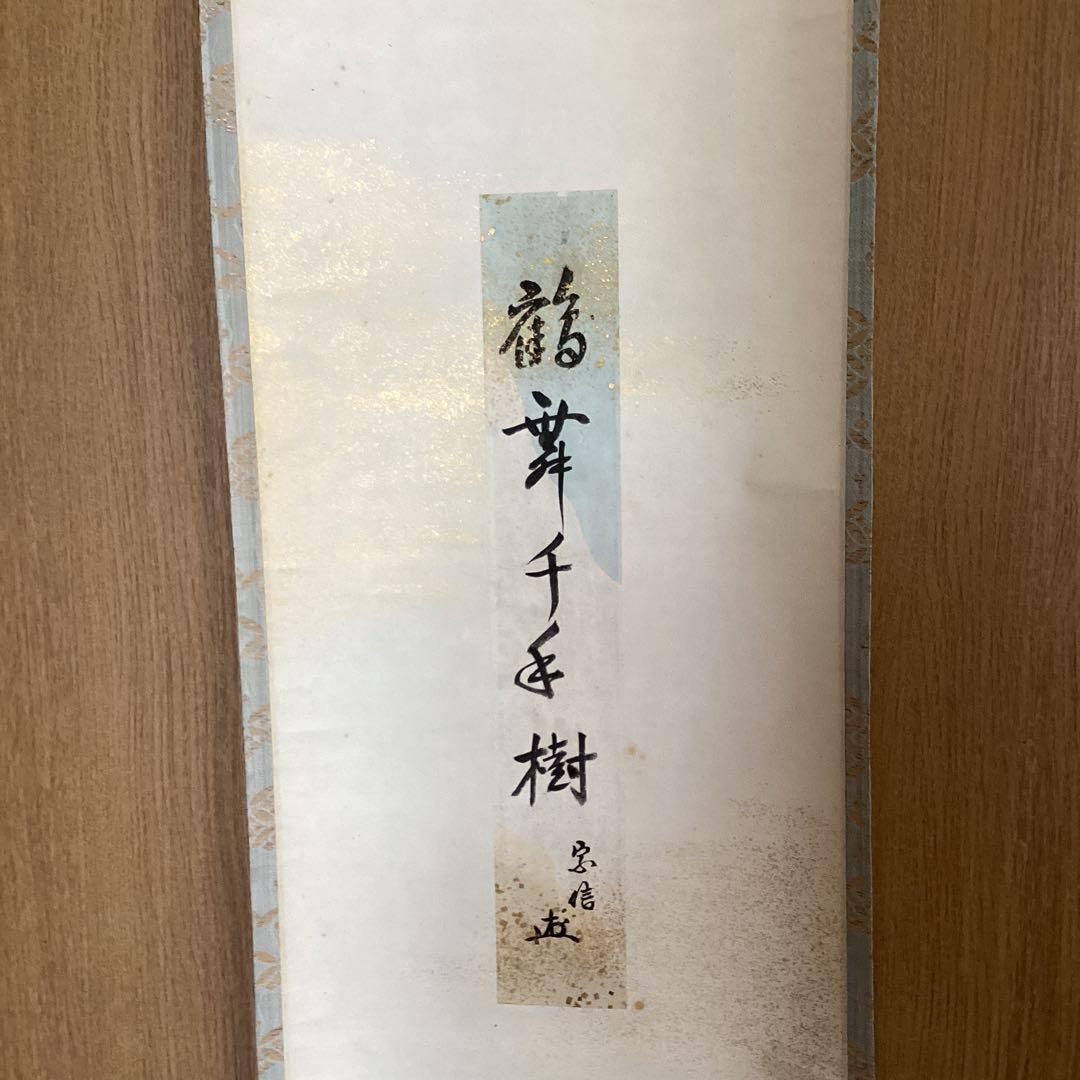 鶴舞千年樹
宗信